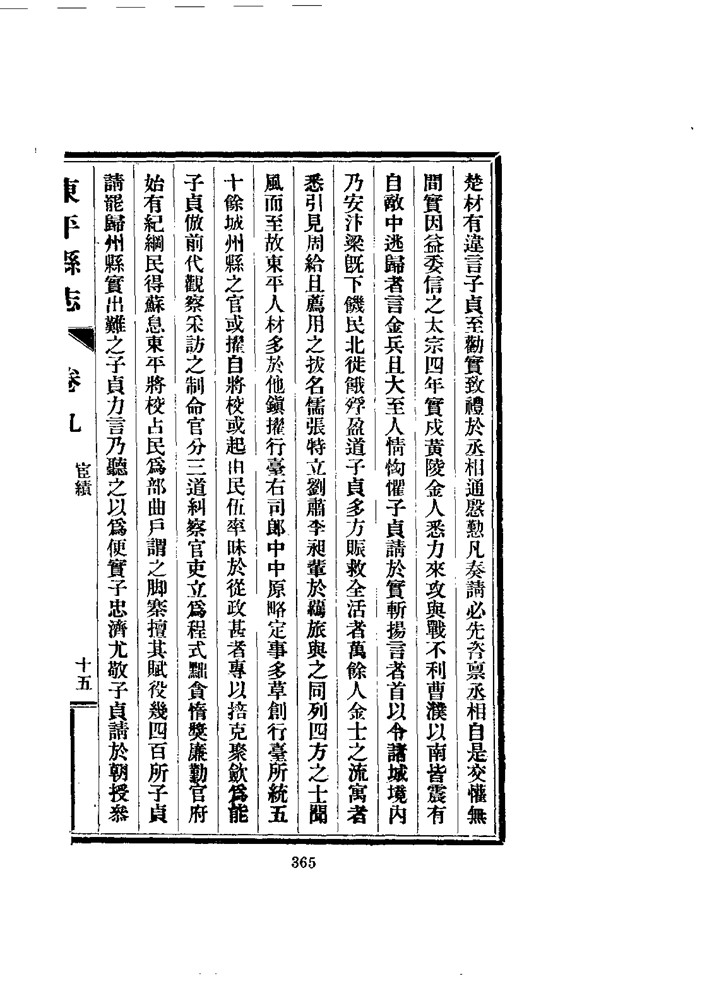 楚材有違言子貞至勸實致禮於丞相通慇懃凡奏請必先咨稟丞相自是交懽無
間實因益委信之太宗四年實戍黃陵金人悉力來攻與戰不利曹濮以南皆震有
自敵中逃歸者言金兵且大至人情恟懼子貞請於實斬揚言者首以令諸城境內
乃安汴梁旣下饑民北徙餓殍盈道子貞多方賑救全活者萬餘人金士之流寓者
悉引見周給且薦用之拔名儒張特立劉肅李昶輩於羈旅與之同列四方之士聞
風而至故東平人材多於他鎭擢行臺右司郎中中原略定事多草創行臺所統五
十餘城州縣之官或擢自將校或起由民伍率昧於從政甚者專以掊克聚歛爲能
子貞倣前代觀察采訪之制命官分三道糾察官吏立爲程式黜貪惰奬廉勤官府
始有紀綱民得蘇息東平將校占民爲部曲戶謂之脚寨擅其賦役幾四百所子貞
請罷歸州縣實出難之子貞力言乃聽之以爲便實子忠濟尤敬子貞請於朝授叅
東平縣志 卷九 宦績 十五
365